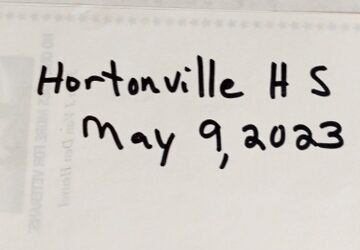 Hortonville H S
May 9, 2023